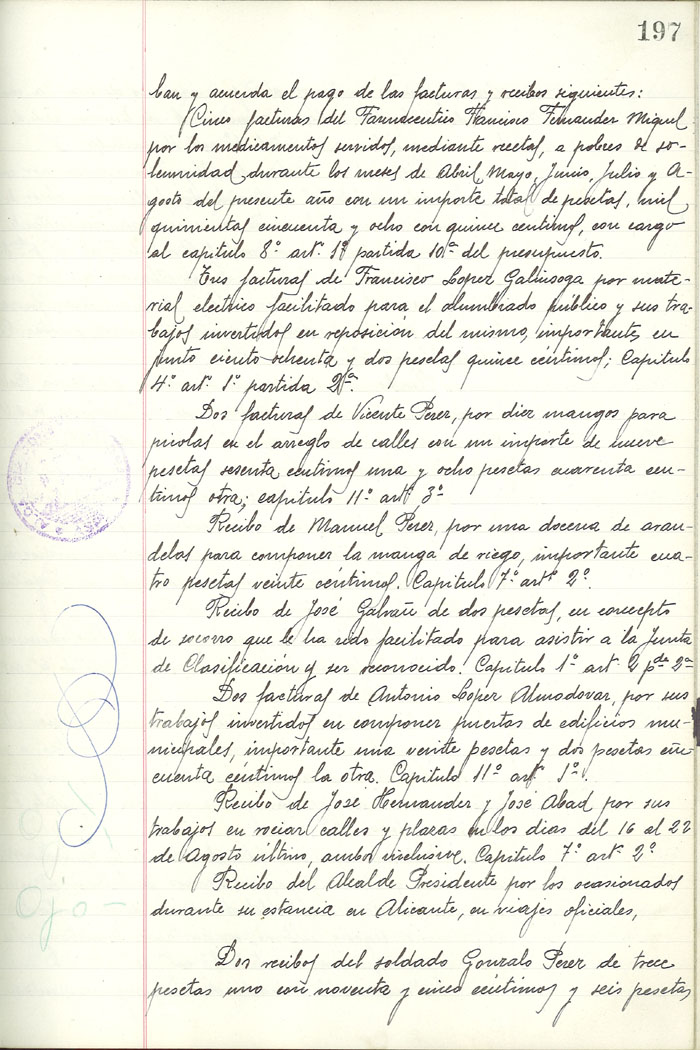 197
ban y acuerda el pago de las facturas y recibos siguientes:
Cinco facturas del Farmaceutico Francisco Fernandez Miguel
por los medicamentos servidos, mediante recetas, a pobres de so-
lemnidad durante los meses de Abril, Mayo, Junio, Julio y A-
gosto del presente año con un importe total de pesetas, mil
quinientas cincuenta y ocho con quince centimos, con cargo
al capitulo 8º artº 1º partida 10ª del presupuesto.
Tres facturas de Francisco Lopez Galiusoga por mate-
rial electrico facilitado para el alumbrado público y sus tra-
bajos invertidos en reposición del mismo, importante, en
junto ciento ochenta y dos pesetas quince céntimos; Capitulo
4º artº 1º partida 2ª.
Dos facturas de Vicente Perez, por diez mangos para
picolas en el arreglo de calles con un importe de nueve
pesetas sesenta centimos una y ocho pesetas cuarenta cen-
timos otra; capitulo 11º artº 3º
Recibo de Manuel Perez, por una docena de aran-
delas para componer la manga de riego, importante cua-
tro pesetas veinte céntimos. Capitulo 7º artº 2º.
Recibo de José Galvañ de dos pesetas, en concepto
de socorro que le ha sido facilitado para asistir a la Junta
de Clasificación y ser reconocido. Capitulo 1º art. 2 pda 2ª
Dos facturas de Antonio Lopez Almodovar, por sus
trabajos invertidos en componer puertas de edificios mu-
nicipales, importante una veinte pesetas y dos pesetas cin-
cuenta céntimos la otra. Capitulo 11º artº 1º.
Recibo de José Hernandez y José Abad por sus
trabajos en rociar calles y plazas en los dias del 16 al 22
de Agosto último, ambos inclusive. Capitulo 7º artº 2º
Recibo del Alcalde Presidente por los ocasionados
durante su estancia en Alicante, en viajes oficiales,
Dos recibos del soldado Gonzalo Perez de trece
pesetas uno con noventa y cinco céntimos y seis pesetas
Ojo-